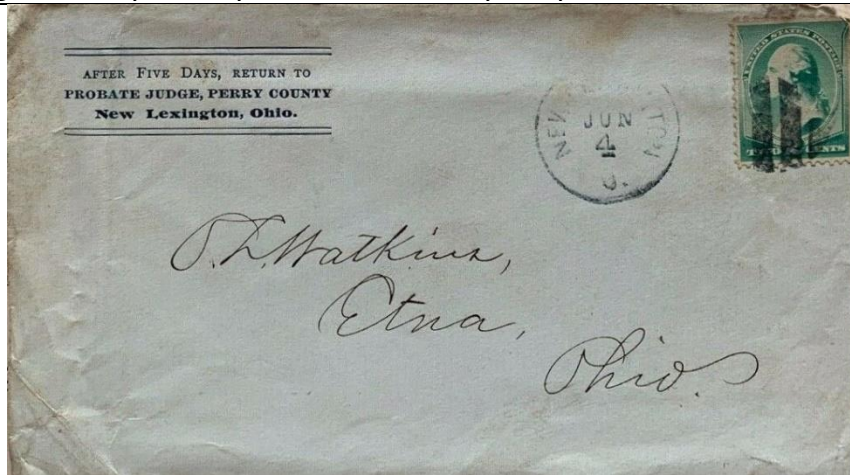 AFTER FIVE DAYS, RETURN TO
PROBATE JUDGE, PERRY COUNTY
New Lexington, Ohio.
UNITED STATES POSTAGE
TWO CENTS
NEW TON
JUN
4
O.
Watkins,
Etna,
Ohio.